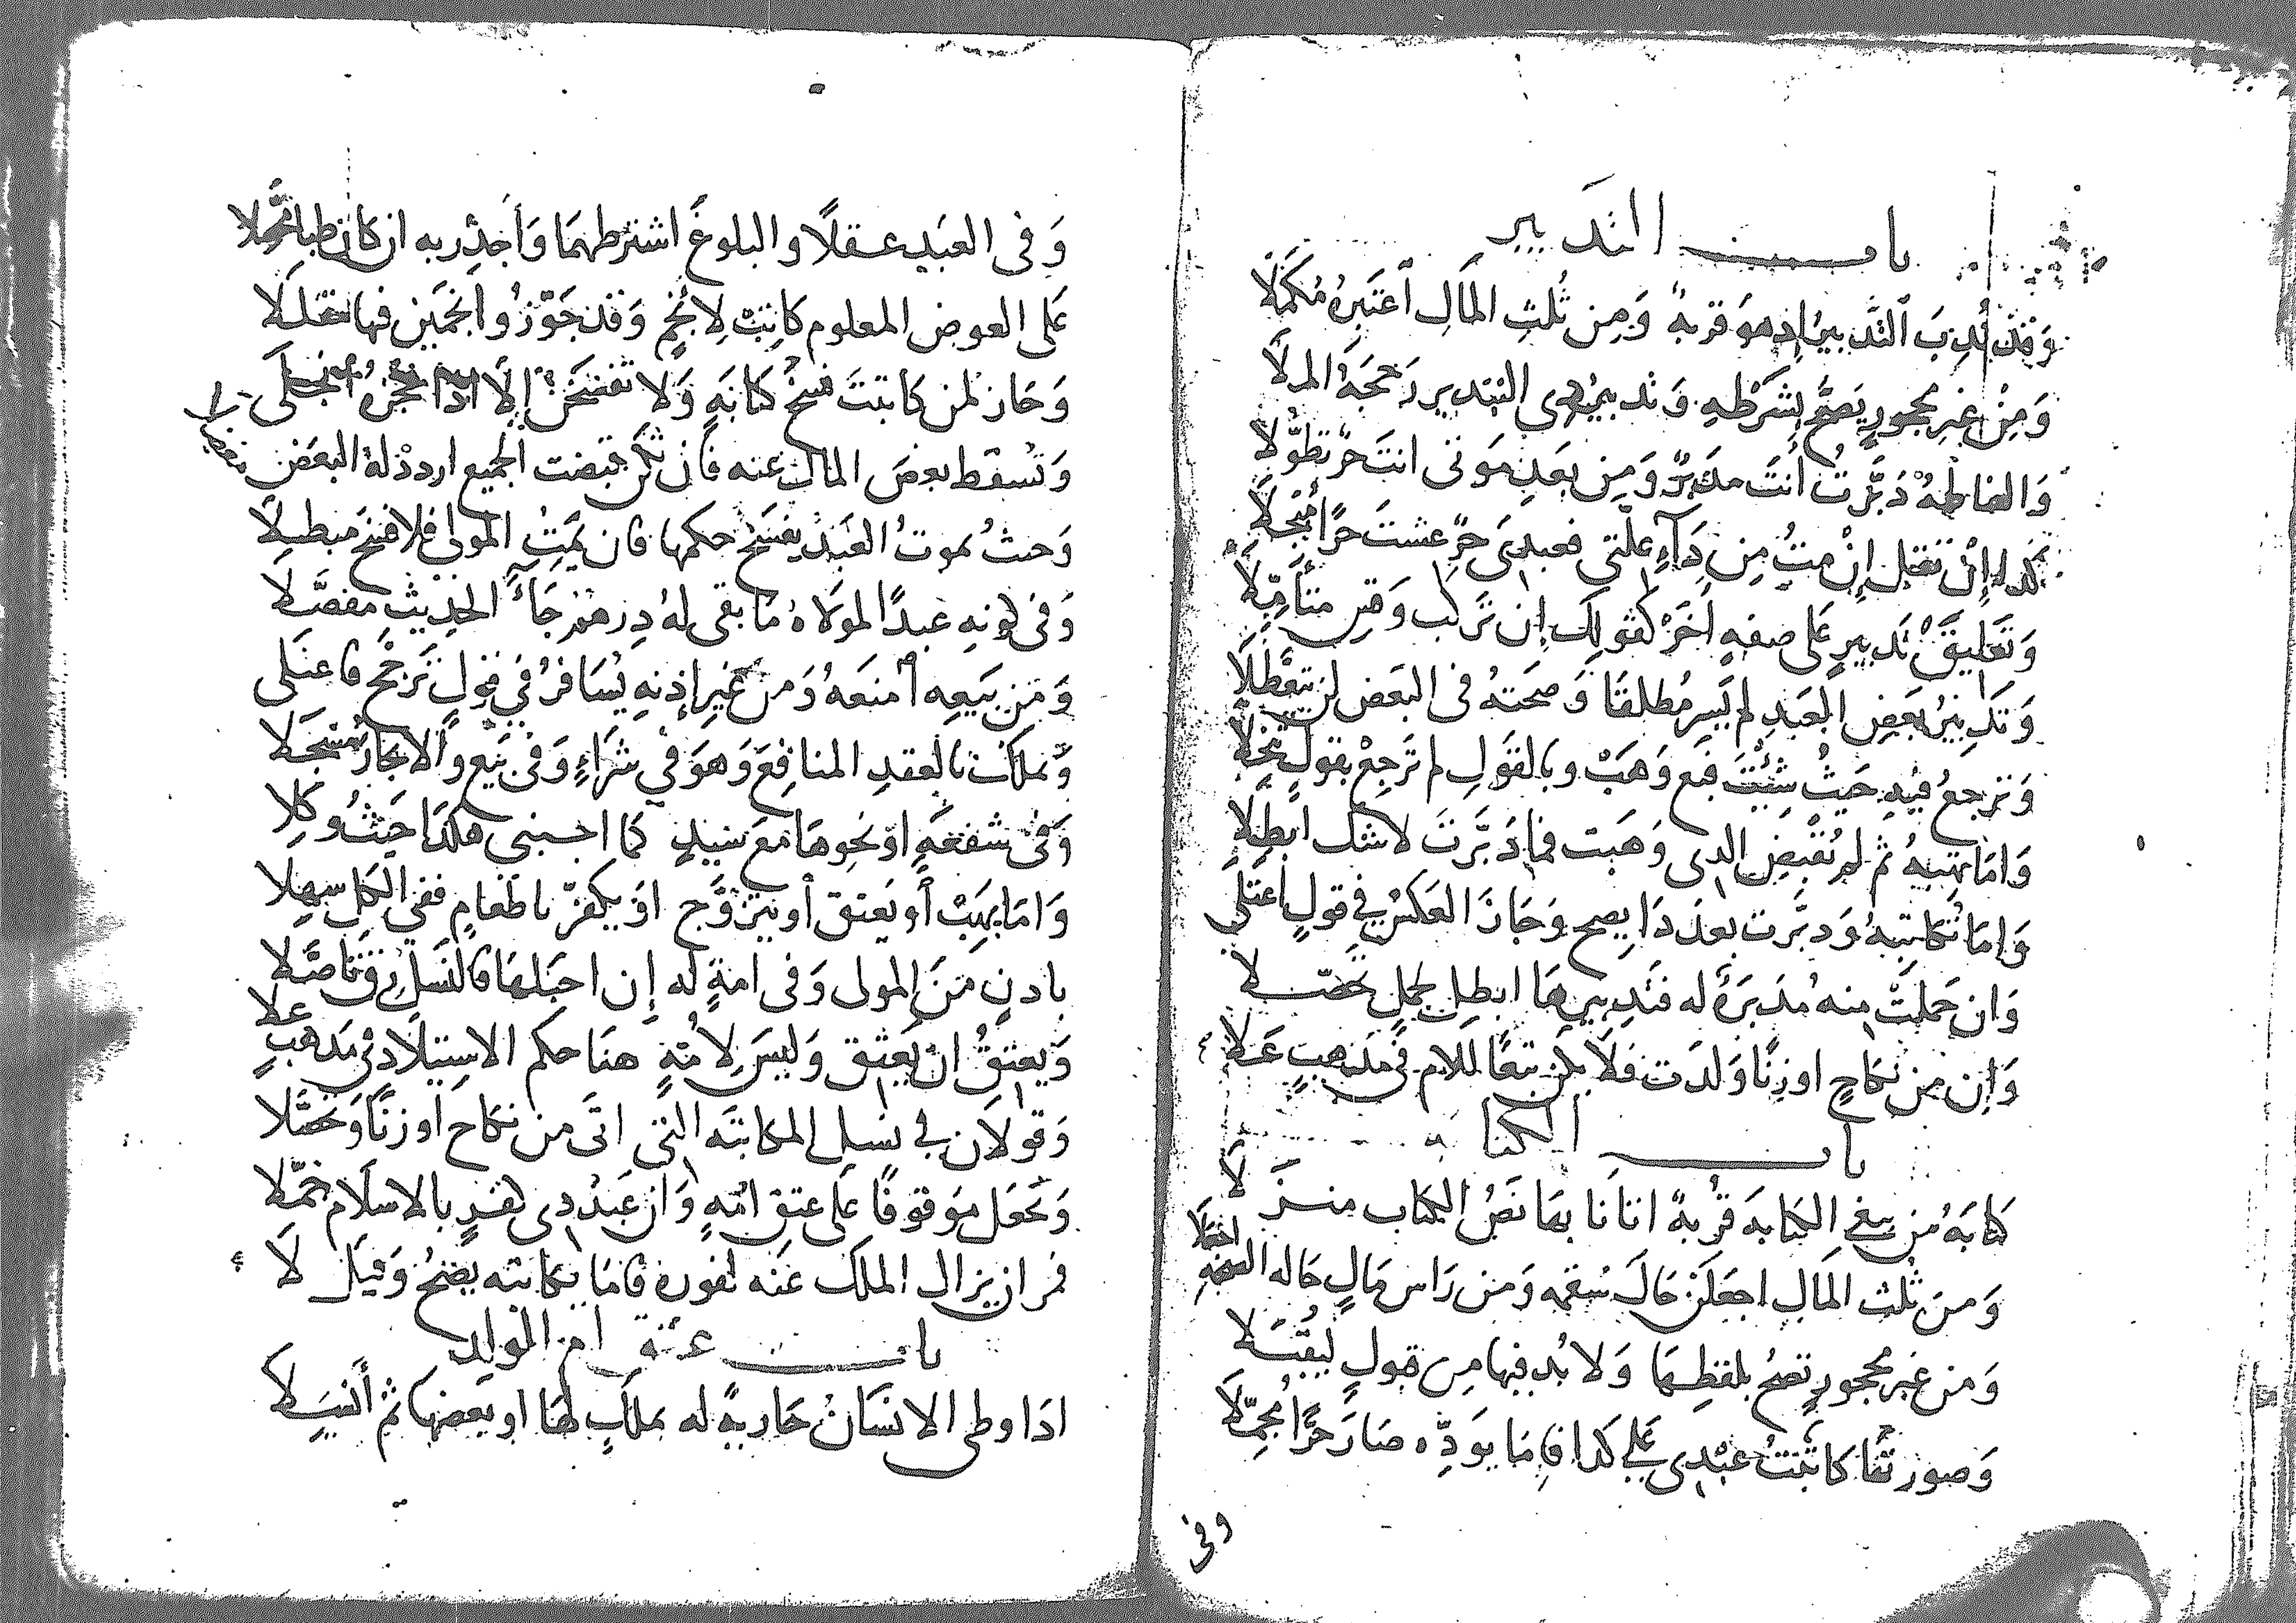 باب التدبير
وَقَد نُدِبَ التَّدبيرُ اذ هوَ قربة وَمِن ثُلثِ المَالِ اَعتَبِرهُ مُكمَّلَا
وَمِنْ غيرِ محجورٍ يَصحُّ بشَرْطِهِ وَتدبير ذى التبدير رَجحَهُ الملَا
وَالفاظهُ دَبَّرتُ أنتَ مدَبرٌ وَمِن بعَدِ مَوتى انتَ حرٌ تطَوُّلا
كذا إِنْ تقل إِنْ متُ مِن دَآءِ علَّتى فعبدى حرٌ عشتَ حرًا
وَتَعَليق تَدبيرٍ عَلى صفةٍ اَخَرْ كقَولِكَ إن تركب وَقِس متأمِّلَا
وَتَدبيرُ بعَضِ العَبَدِ لم يَسرِ مُطلقَا وَصحَتهُ فى البعَض لن تتعَطَّلَا
وَترجعُ فيْهِ حَيثُ شِئتَ فبَع وَهَبْ وبالقَولِ لم تَرجعْ بقَولٍ
وَامَا تهبهُ ثم لم يُقْبَضِ الذى وَهَبت فمَا دَبَّرتَ لا شك ابطِلَا
وَامَا تُكاتبهُ وَدبَّرت بعدَ ذَا يصح وَجَازَ العَكسُ فِي قولٍ اعتلى
وَان حَملَتْ منهُ مُدَبرَةٌ له فتَدبيرهَا ابطِل بحملٍ تحصّلا
وَاِن مِن نكاحٍ او زِنًا وَلدَت فلَا يكن تبعًا للام فى مَذهبٍ عَلَا
باب الكتابة
كتابَةُ من يبغى الكتابة قُربةٌ اتانَا بهَا نَصُ الكتاب منزَّلا
وَمن ثُلث المَالِ اجعَلَنْ حَالَ سُقمه وَمن رَاس مَالٍ حاله الصحة اجعَلَا
وَمن غير محجورٍ تصحُ بلفظِهَا وَلا بُد فيها مِن قبولٍ ليُقبَلا
وَصورتهَا كاتبتُ عَبْدِى عَلى كذا فامَا يوَدِّه صَارَ حرًّا
وفى
وَفى العبَدِ عقلًا والبلوغَ اشترطهمَا وَأجدِر به ان كان طبا محصّلا
عَلى العوض المعلوم كانت لأنجمٍ وَقد جَوّزُوا نجمَين فيها
وَجَاز لمن كاتبتَ فسخ كتابَةٍ وَلا تفسَخَن إلَّا اذا عجزهُ انجلَى
وَتُسقط بعض المال عنه فان تكن قبضت الجميع اردد لهُ البعَض
وَحيثُ يموتُ العَبَد يفسَخ حكمها فان يمتِ المولى فلا فسخ مبطلًا
وَفى كونهِ عَبدًا لموَلاه مَا بقى لهُ دِرهمْ جَاءَ الحدِيثُ مفصَّلَا
وَمَن بَيَعِه امنعَهُ وَمن غيرِ إذنهِ يُسَافرُ في قولٍ ترَجَّح فاعتَلى
وَيملك بالعقدِ المنافِعَ وَهوَ في شرَاءٍ وَفى بَيع
وَفى شفعَةٍ او نحوهَا مَعَ سَيدٍ كمَا اجنبى هكذَا حَيثُ وُكلا
وَامَا يهَبْ أو يَعتق أو يتزوَّج اوَ يكفرّ باطعَامٍ ففي الكل سهِلا
باذنٍ مَنَ المولى وَفى امةٍ له إن احبَلهَا فالنَسَل
وَيعتقُ ان يَعتِق وَليسَ لِامِّهِ هنَا حكم الاستيلاد فى مَذهَبٍ عَلا
وَقولان في نسلِ المكاتبَه التى اتَى من نكاح او زنًا
وَتجعَل مَوقوفًا عَلى عتق امّهِ وَان عَبدُ ذِى كفرٍ بالاسلَام
فمر ان يزال الملك عَنه لفوره فامَا يكاتبه يصَحُ وَقيَل لَا
باب عتق ام الوَلِد
اذَا وطى الانسَان جَاريةً له بملكٍ لهَا او بعَضها ثم